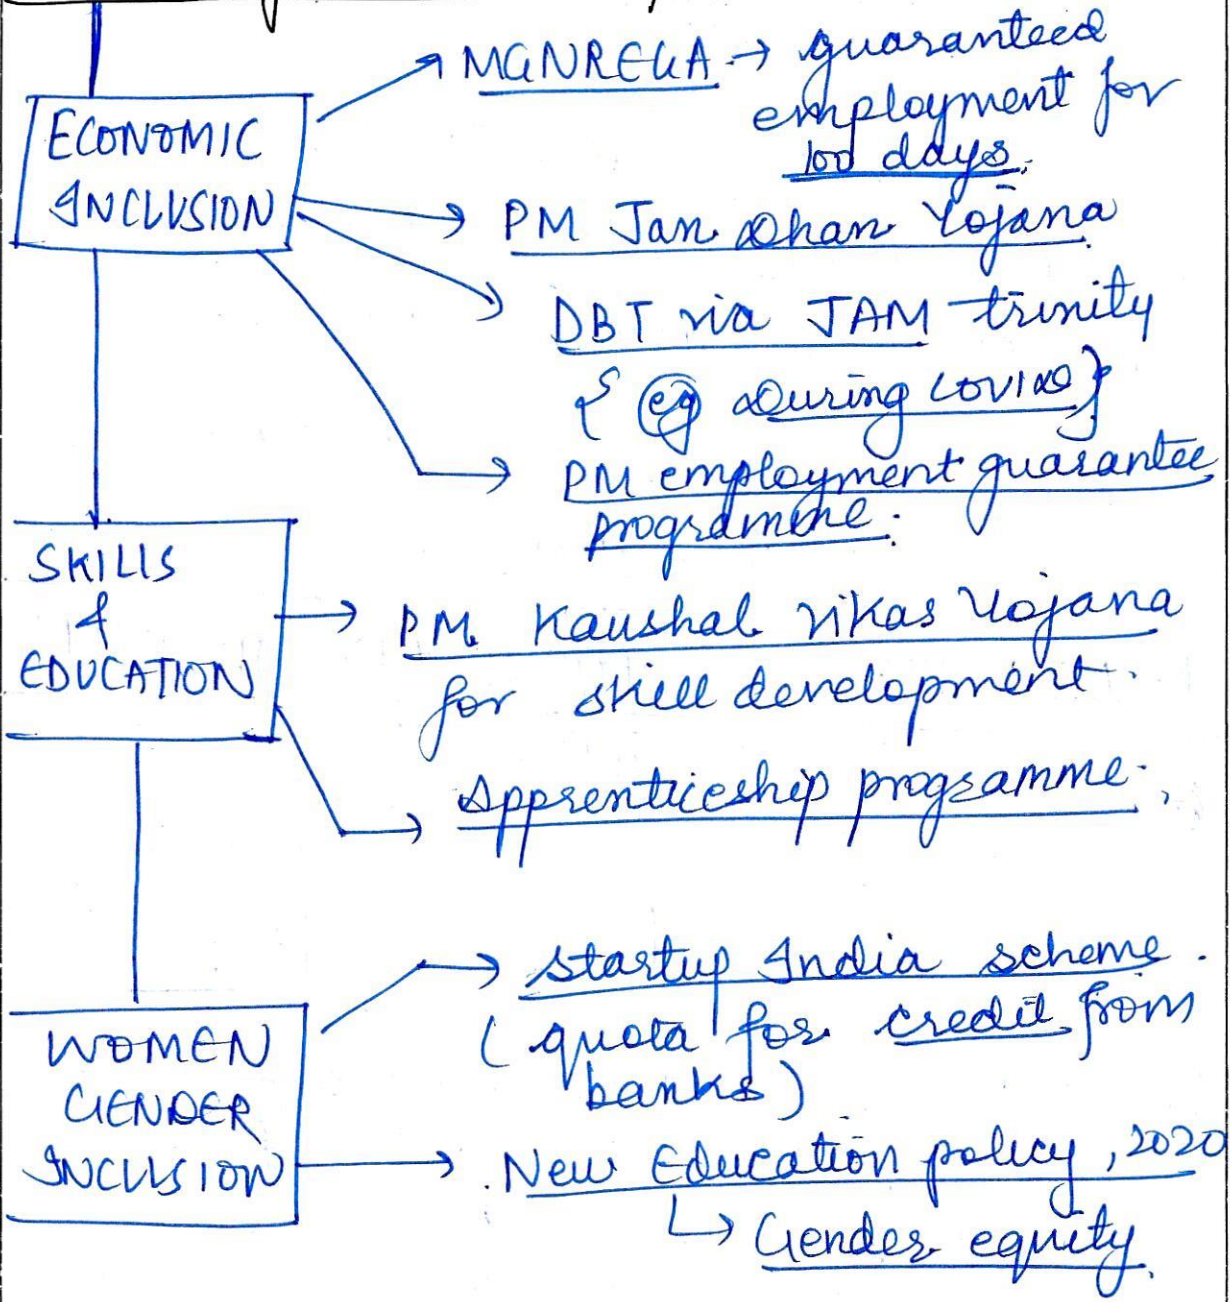 ECONOMIC
INCLUSION
MGNREGA → guaranteed
employment for
100 days.
PM Jan Dhan Yojana
DBT via JAM trinity
{ eg During COVID }
PM employment guarantee
programme.
SKILLS
&
EDUCATION
PM Kaushal Vikas Yojana
for skill development.
Apprenticeship programme.
WOMEN
GENDER
INCLUSION
Startup India scheme.
( quota for credit from
banks )
New Education policy, 2020
↳ Gender equity.